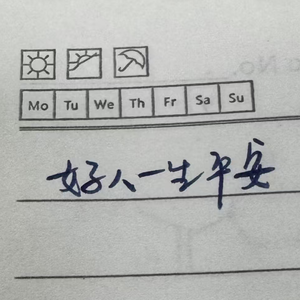 Mo Tu We Th Fr Sa Su
好人一生平安